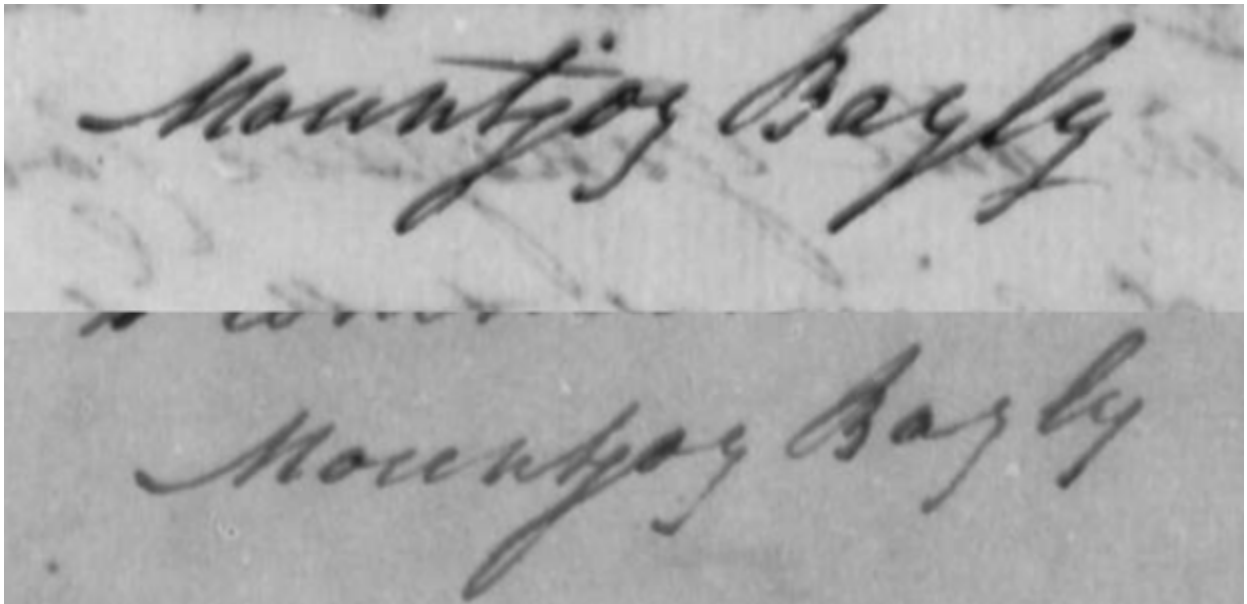 Mountjoy Bayly
Mountjoy Bayly